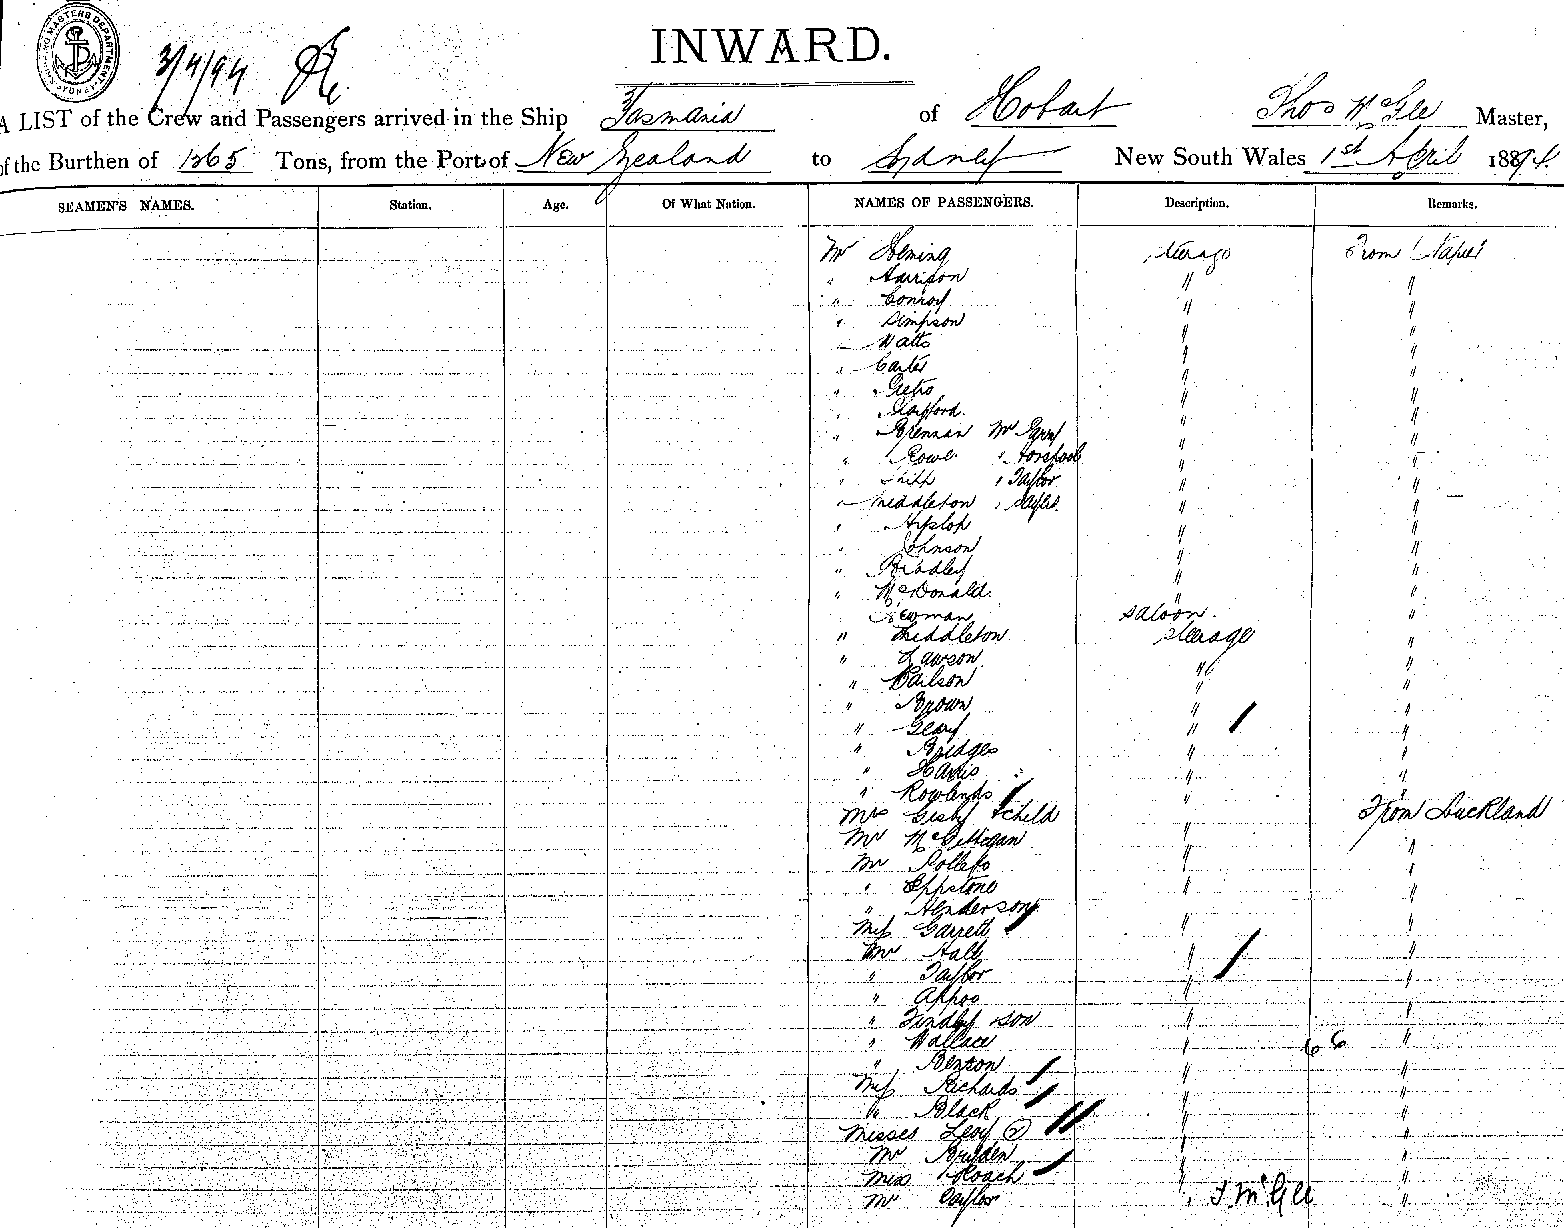 3/4/94
INWARD.
A LIST of the Crew and Passengers arrived in the Ship Tasmania of Hobart Thos McGee Master,
of the Burthen of 1265 Tons, from the Port of New Zealand to Sydney New South Wales 1st April 1894.
SEAMEN'S NAMES. Station. Age. Of What Nation. NAMES OF PASSENGERS. Description. Remarks.
Mr Fleming steerage From Napier
" Harrison " "
" Conroy " "
" Simpson " "
" Watts " "
" Carter " "
" "
" "
" Brennan Mr " "
" Rowe " " "
" " Taylor " "
" Middleton " " "
" Hyslop " "
" Johnson " "
" Bradley " "
" McDonald. " "
Newman saloon. "
" Middleton steerage "
" Lawson " "
" " "
" Brown " "
" Geary " "
" Bridges " "
" Harris " "
" Rowlands " "
Mrs & child From Auckland
Mr " "
Mr "
" Eppstone " "
" Henderson
Miss Garrett " "
Mr Hall " "
" Taylor " "
" Ah Poo " "
" Findlay & son " "
" Wallace " 66 "
" Benson " "
Miss Richards " "
" Black " "
Misses Levy (2) " "
Mr
Miss Roach " "
Mr Taylor " T. McGee "